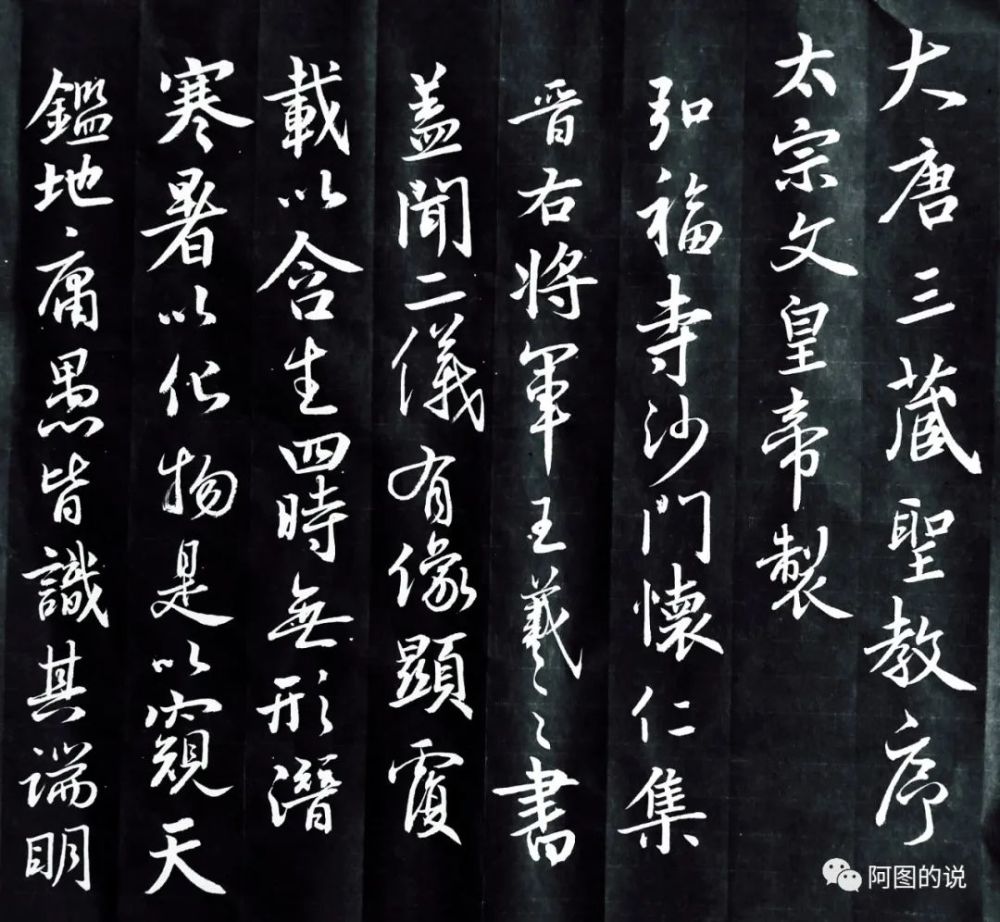 大唐三藏聖教序
太宗文皇帝製
弘福寺沙門懷仁集
晉右將軍王羲之書
蓋聞二儀有像顯覆
載以含生四時無形潛
寒暑以化物是以窺天
鑑地庸愚皆識其端明
阿图的说